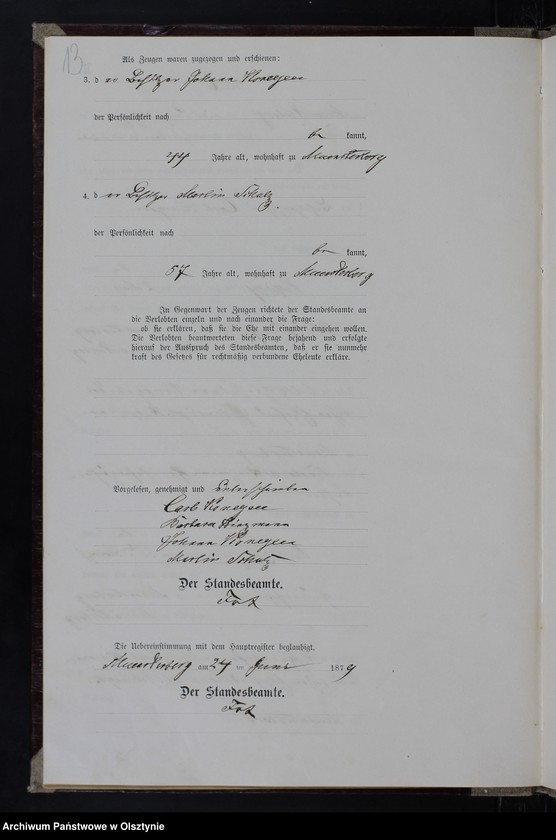 13
Als Zeugen waren zugezogen und erschienen:
3. d er Besitzer Johann Konegen
der Persönlichkeit nach
be kannt,
Jahre alt, wohnhaft zu Muensterberg
4. d er Besitzer Martin Schulz.
der Persönlichkeit nach
be kannt,
57 Jahre alt, wohnhaft zu Muensterberg
In Gegenwart der Zeugen richtete der Standesbeamte an
die Verlobten einzeln und nach einander die Frage:
ob sie erklären, daß sie die Ehe mit einander eingehen wollen.
Die Verlobten beantworteten diese Frage bejahend und erfolgte
hierauf der Ausspruch des Standesbeamten, daß er sie nunmehr
kraft des Gesetzes für rechtmäßig verbundene Eheleute erkläre.
Vorgelesen, genehmigt und unterschrieben
Carl Konegen
Barbara
Johann Konegen
Martin Schulz
Der Standesbeamte.
Die Uebereinstimmung mit dem Hauptregister beglaubigt.
Muensterberg am 24 ten Juni 1879
Der Standesbeamte.
Archiwum Państwowe w Olsztynie